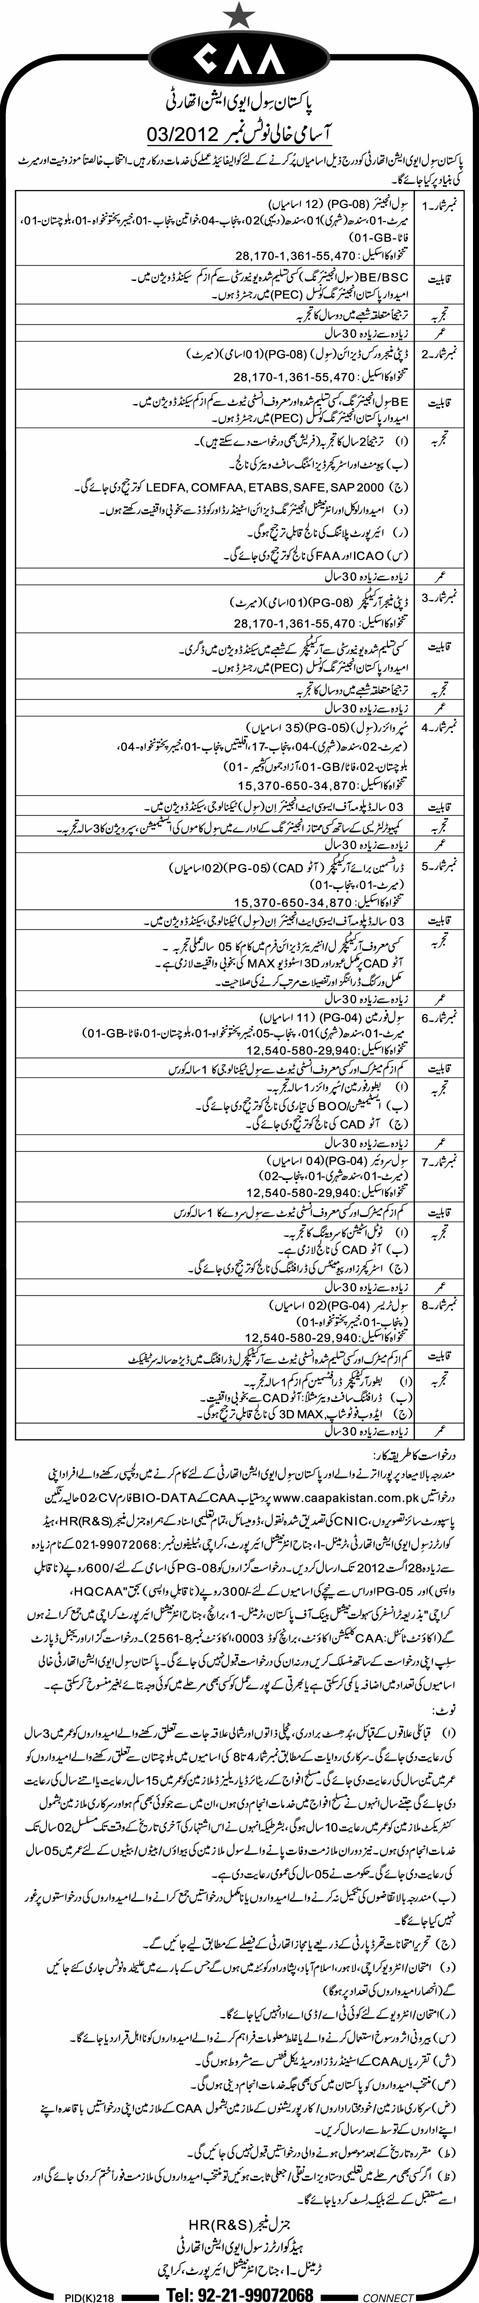 CAA
پاکستان سول ایوی ایشن اتھارٹی
آسامی خالی نوٹس نمبر 03/2012
پاکستان سول ایوی ایشن اتھارٹی کو درج ذیل اسامیاں پُر کرنے کے لئے کوالیفائیڈ عملے کی خدمات درکار ہیں۔ انتخاب خالصتاً موزونیت اور میرٹ
کی بنیاد پر کیا جائے گا۔
نمبر شمار۔1 سول انجینئر (PG-08) (12 اسامیاں)
میرٹ-01، سندھ (شہری) 01، سندھ (دیہی) 02، پنجاب-04، خواتین پنجاب-01، خیبر پختونخواہ-01، بلوچستان-01،
فاٹا-GB-01)
تنخواہ کا اسکیل: 28,170-1,361-55,470
قابلیت BE/BSC (سول انجینئرنگ) کسی تسلیم شدہ یونیورسٹی سے کم از کم سیکنڈ ڈویژن میں۔
امیدوار پاکستان انجینئرنگ کونسل (PEC) میں رجسٹرڈ ہوں۔
تجربہ ترجیحاً متعلقہ شعبے میں دو سال کا تجربہ
عمر زیادہ سے زیادہ 30 سال
نمبر شمار۔2 ڈپٹی منیجر ورکس ڈیزائن (سول) (PG-08) (01 اسامی) (میرٹ)
تنخواہ کا اسکیل: 28,170-1,361-55,470
قابلیت BE سول انجینئرنگ، کسی تسلیم شدہ اور معروف انسٹی ٹیوٹ سے کم از کم سیکنڈ ڈویژن میں۔
امیدوار پاکستان انجینئرنگ کونسل (PEC) میں رجسٹرڈ ہوں۔
تجربہ (ا) ترجیحاً 2 سال کا تجربہ (فریش بھی درخواست دے سکتے ہیں)۔
(ب) پیومنٹ اور اسٹرکچر ڈیزائننگ سافٹ ویئر کی نالج۔
(ج) LEDFA, COMFAA, ETABS, SAFE, SAP 2000 کو ترجیح دی جائے گی۔
(د) امیدوار لوکل اور انٹرنیشنل انجینئرنگ ڈیزائن اسٹینڈرڈ اور کوڈ سے بخوبی واقفیت رکھتے ہوں۔
(ر) ائیر پورٹ پلاننگ کی نالج قابل ترجیح ہوگی۔
(س) ICAO اور FAA کی نالج کو ترجیح دی جائے گی۔
عمر زیادہ سے زیادہ 30 سال
نمبر شمار۔3 ڈپٹی منیجر آرکیٹیکچر (PG-08) (01 اسامی) (میرٹ)
تنخواہ کا اسکیل: 28,170-1,361-55,470
قابلیت کسی تسلیم شدہ یونیورسٹی سے آرکیٹیکچر کے شعبے میں سیکنڈ ڈویژن میں ڈگری۔
امیدوار پاکستان انجینئرنگ کونسل (PEC) میں رجسٹرڈ ہوں۔
تجربہ ترجیحاً متعلقہ شعبے میں دو سال کا تجربہ
عمر زیادہ سے زیادہ 30 سال
نمبر شمار۔4 سپروائزر (سول) (PG-05) (35 اسامیاں)
(میرٹ-02، سندھ (شہری)-04، پنجاب-17، اقلیتیں پنجاب-01، خیبر پختونخواہ-04،
بلوچستان-02، فاٹا/GB-01، آزاد جموں کشمیر-01)
تنخواہ کا اسکیل: 15,370-650-34,870
قابلیت 03 سالہ ڈپلومہ آف ایسوسی ایٹ انجینئر اِن (سول) ٹیکنالوجی، سیکنڈ ڈویژن میں۔
تجربہ کمپیوٹر لٹریسی کے ساتھ کسی ممتاز انجینئرنگ کے ادارے میں سول کاموں کی ایسٹیمیشن، سپرویژن کا 3 سالہ تجربہ۔
عمر زیادہ سے زیادہ 30 سال
نمبر شمار۔5 ڈرافٹسمین برائے آرکیٹیکچر (آٹو CAD) (PG-05) (02 اسامیاں)
(میرٹ-01، پنجاب-01)
تنخواہ کا اسکیل: 15,370-650-34,870
قابلیت 03 سالہ ڈپلومہ آف ایسوسی ایٹ انجینئر اِن (سول) ٹیکنالوجی، سیکنڈ ڈویژن میں۔
تجربہ کسی معروف آرکیٹیکچرل/انٹیریئر ڈیزائن فرم میں کام کا 05 سالہ عملی تجربہ۔
آٹو CAD پر مکمل عبور اور 3D اسٹوڈیو MAX کی بخوبی واقفیت لازمی ہے۔
مکمل ورکنگ ڈرائنگز اور تفصیلات مرتب کرنے کی صلاحیت۔
عمر زیادہ سے زیادہ 30 سال
نمبر شمار۔6 سول فورمین (PG-04) (11 اسامیاں)
میرٹ-01، سندھ (شہری) 01، پنجاب-05، خیبر پختونخواہ-01، بلوچستان-01، فاٹا-GB-01)
تنخواہ کا اسکیل: 12,540-580-29,940
قابلیت کم از کم میٹرک اور کسی معروف انسٹی ٹیوٹ سے سول ٹیکنالوجی کا 1 سالہ کورس
تجربہ (ا) بطور فورمین/سپروائزر 1 سالہ تجربہ۔
(ب) ایسٹیمیشن/BOQ کی تیاری کی نالج کو ترجیح دی جائے گی۔
(ج) آٹو CAD کی نالج کو ترجیح دی جائے گی۔
عمر زیادہ سے زیادہ 30 سال
نمبر شمار۔7 سول سرویئر (PG-04) (04 اسامیاں)
(میرٹ-01، سندھ شہری-01، پنجاب-02)
تنخواہ کا اسکیل: 12,540-580-29,940
قابلیت کم از کم میٹرک اور کسی معروف انسٹی ٹیوٹ سے سول سروے کا 1 سالہ کورس
تجربہ (ا) ٹوٹل اسٹیشن کا سرویئنگ کا تجربہ۔
(ب) آٹو CAD کی نالج لازمی ہے۔
(ج) اسٹرکچرز اور پیومینٹس کی ڈرافٹنگ کی نالج کو ترجیح دی جائے گی۔
عمر زیادہ سے زیادہ 30 سال
نمبر شمار۔8 سول ٹریسر (PG-04) (02 اسامیاں)
(پنجاب-01، خیبر پختونخواہ-01)
تنخواہ کا اسکیل: 12,540-580-29,940
قابلیت کم از کم میٹرک اور کسی تسلیم شدہ انسٹی ٹیوٹ سے آرکیٹیکچرل ڈرافٹنگ میں ڈیڑھ سالہ سرٹیفکیٹ
تجربہ (ا) بطور آرکیٹیکچر ڈرافٹسمین کم از کم 1 سالہ تجربہ۔
(ب) ڈرافٹنگ سافٹ ویئر مثلاً: آٹو CAD سے بخوبی واقفیت۔
(ج) ایڈوب فوٹو شاپ، 3D MAX کی نالج قابل ترجیح ہوگی۔
عمر زیادہ سے زیادہ 30 سال
درخواست کا طریقہ کار:
مندرجہ بالا معیار پر پورا اترنے والے اور پاکستان سول ایوی ایشن اتھارٹی کے لئے کام کرنے میں دلچسپی رکھنے والے افراد اپنی
درخواستیں www.caapakistan.com.pk پر دستیاب CAA کے BIO-DATA فارم، CV، 02 حالیہ رنگین
پاسپورٹ سائز تصویروں، CNIC کی تصدیق شدہ نقول، ڈومیسائل، تمام تعلیمی اسناد کے ہمراہ جنرل منیجر HR(R&S)، ہیڈ
کوارٹرز سول ایوی ایشن اتھارٹی، ٹرمینل-1، جناح انٹرنیشنل ائیر پورٹ، کراچی، ٹیلیفون نمبر: 021-99072068 کے نام زیادہ
سے زیادہ 28 اگست 2012 تک ارسال کردیں۔ درخواست گزاروں کو PG-08 کی اسامی کے لئے -/600 روپے (ناقابل
واپسی) اور PG-05 اور اس سے نیچے کی اسامیوں کے لئے -/300 روپے (ناقابل واپسی) بحق "HQCAA،
کراچی" بذریعہ ٹرانسفر کی سہولت نیشنل بینک آف پاکستان، ٹرمینل-1، برانچ، جناح انٹرنیشنل ائیر پورٹ کراچی میں جمع کرانے ہوں
گے (اکاؤنٹ ٹائٹل: CAA کلیکشن اکاؤنٹ، برانچ کوڈ 0003، اکاؤنٹ نمبر 8-2561)۔ درخواست گزار اوریجنل ڈپازٹ
سلپ اپنی درخواست کے ساتھ منسلک کریں ورنہ ان کی درخواست قبول نہیں کی جائے گی۔ پاکستان سول ایوی ایشن اتھارٹی خالی
اسامیوں کی تعداد میں اضافہ یا کمی کرسکتی ہے یا بھرتی کے پورے عمل کو کسی بھی مرحلے میں کوئی وجہ بتائے بغیر منسوخ کرسکتی ہے۔
نوٹ:
(ا) قبائلی علاقوں کے قبائل، بدھسٹ برادری، نچلی ذاتوں اور شمالی علاقہ جات سے تعلق رکھنے والے امیدواروں کو عمر میں 3 سال
کی رعایت دی جائے گی۔ سرکاری روایات کے مطابق نمبر شمار 4 تا 8 کی اسامیوں میں بلوچستان سے تعلق رکھنے والے امیدواروں کو
عمر میں تین سال کی رعایت دی جائے گی۔ مسلح افواج کے ریٹائرڈ یا ریلیزڈ ملازمین کو عمر میں 15 سال رعایت یا اتنے سال کی رعایت
دی جائے گی جتنے سال انہوں نے مسلح افواج میں خدمات انجام دی ہوں، ان میں سے جو کوئی بھی کم ہو اور سرکاری ملازمین بشمول
کنٹریکٹ ملازمین کو عمر میں رعایت 10 سال ہوگی، بشرطیکہ انہوں نے اس اشتہار کی آخری تاریخ کے وقت تک مسلسل 02 سال تک
خدمات انجام دی ہوں۔ نیز دوران ملازمت وفات پانے والے سول ملازمین کی بیواؤں/بیٹوں/بیٹیوں کے لئے عمر میں 05 سال
کی رعایت دی جائے گی۔ حکومت نے 05 سال کی عمومی رعایت دی ہے۔
(ب) مندرجہ بالا تقاضوں کی تکمیل نہ کرنے والے امیدواروں یا نامکمل درخواستیں جمع کرانے والے امیدواروں کی درخواستوں پر غور
نہیں کیا جائے گا۔
(ج) تحریری امتحانات تھرڈ پارٹی کے ذریعے یا مجاز اتھارٹی کے فیصلے کے مطابق لیے جائیں گے۔
(د) امتحان/انٹرویو کراچی، لاہور، اسلام آباد، پشاور اور کوئٹہ میں ہوں گے جس کے بارے میں علیحدہ نوٹس جاری کئے جائیں
گے (انحصار امیدواروں کی تعداد پر ہوگا)
(ر) امتحان/انٹرویو کے لئے کوئی ٹی اے/ڈی اے ادا نہیں کیا جائے گا۔
(س) بیرونی اثر و رسوخ استعمال کرنے والے یا غلط معلومات فراہم کرنے والے امیدواروں کو نااہل قرار دیا جائے گا۔
(ش) تقرریاں CAA کے اسٹینڈرڈز اور میڈیکل فٹنس سے مشروط ہوں گی۔
(ص) منتخب امیدواروں کو پاکستان میں کسی بھی جگہ خدمات انجام دینی ہوں گی۔
(ض) سرکاری ملازمین/خود مختار اداروں/کارپوریشنوں کے ملازمین بشمول CAA کے ملازمین اپنی درخواستیں باقاعدہ اپنے
اپنے اداروں کے توسط سے ارسال کریں۔
(ط) مقررہ تاریخ کے بعد موصول ہونے والی درخواستیں قبول نہیں کی جائیں گی۔
(ظ) اگر کسی بھی مرحلے میں تعلیمی دستاویزات نقلی/جعلی ثابت ہوئیں تو منتخب امیدواروں کی ملازمت فوراً ختم کردی جائے گی اور
اسے مستقبل کے لئے بلیک لسٹ کردیا جائے گا۔
جنرل منیجر HR(R&S)
ہیڈ کوارٹرز سول ایوی ایشن اتھارٹی
ٹرمینل-I، جناح انٹرنیشنل ائیر پورٹ، کراچی
PID(K)218 Tel: 92-21-99072068 CONNECT